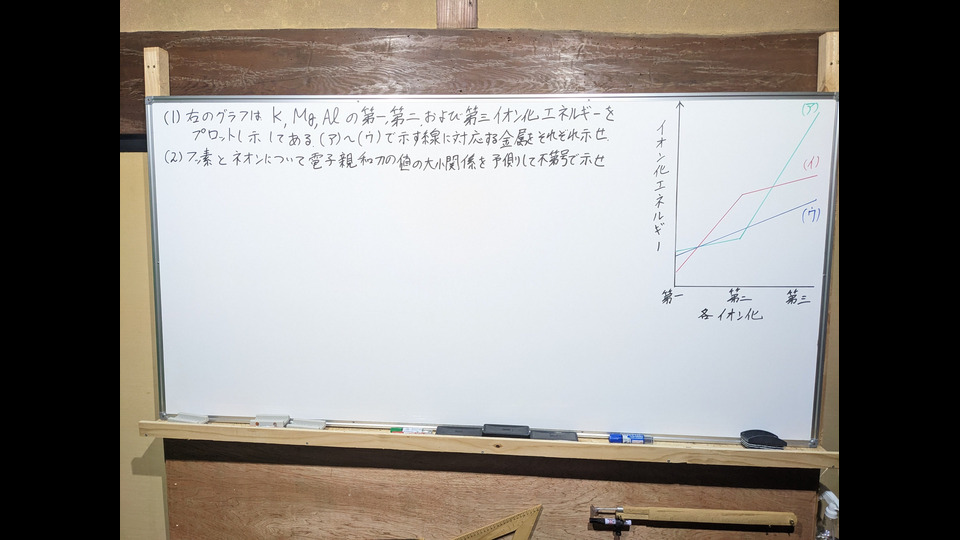 (1) 右のグラフは K, Mg, Al の第一, 第二, および第三イオン化エネルギーを
プロットし示してある. (ア)～(ウ)で示す線に対応する金属をそれぞれ示せ.
(2) フッ素とネオンについて電子親和力の値の大小関係を予測して不等号で示せ
イオン化エネルギー
(ア)
(イ)
(ウ)
第一 第二 第三
各イオン化